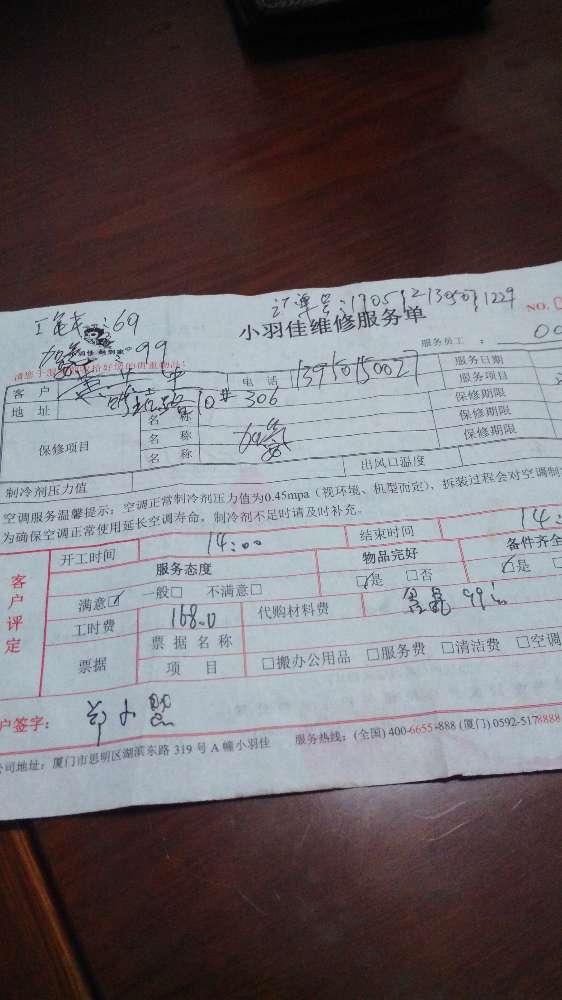 订单号:1705121395071229
:69
小羽佳维修服务单
NO.
加氟:99
服务员工:
00
请您于
客户
电话
13950150027
服务日期
地址
10# 306
服务项目
保修项目
名称
加氟
保修期限
名称
保修期限
名称
保修期限
制冷剂压力值
出风口温度
空调服务温馨提示:空调正常制冷剂压力值为0.45mpa(视环境、机型而定),拆装过程会对空调制
为确保空调正常使用延长空调寿命,制冷剂不足时请及时补充。
客户评定
开工时间
14:00
结束时间
14:
服务态度
物品完好
备件齐全
满意☑ 一般□ 不满意□
☑是 □否
☑是
工时费
168.0
代购材料费
99
票据
票据名称
项目
□搬办公用品 □服务费 □清洁费 □空调
户签字:
公司地址:厦门市思明区湖滨东路 319 号 A 幢小羽佳 服务热线:(全国) 400-6655-888 (厦门) 0592-5178888